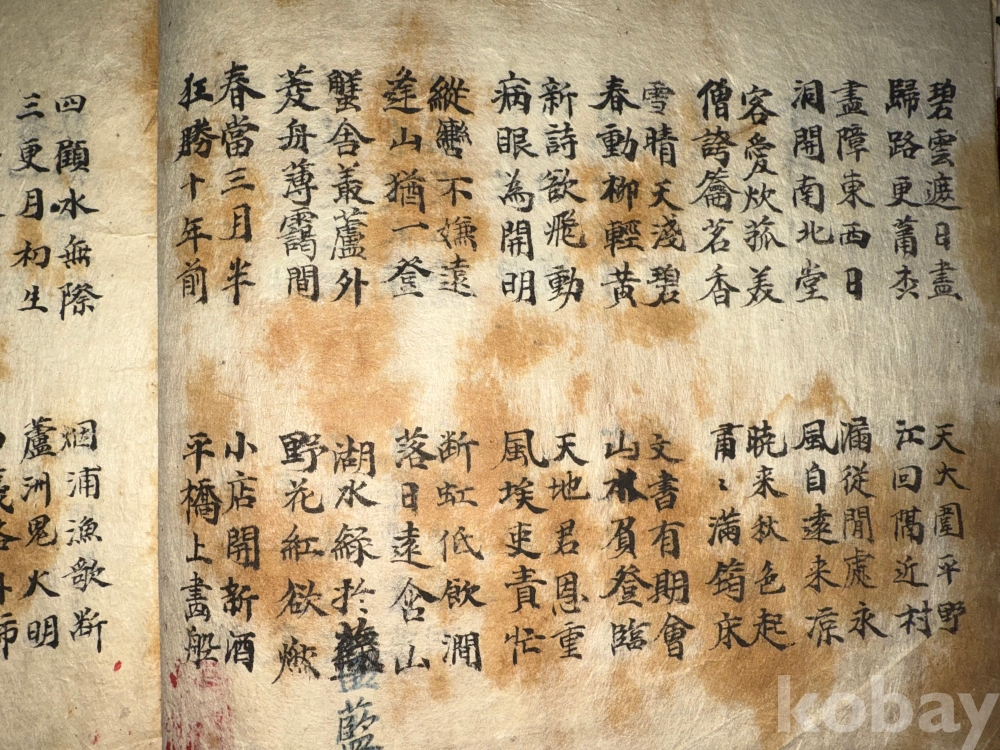 碧雲遮日盡
歸路更蕭
盡障東西日
洞開南北堂
客愛炊菰美
僧誇籥茗香
雪晴天淺碧
春動柳輕黃
新詩欲飛動
病眼為開明
縱轡不嫌遠
逢山猶一登
蟹舍叢蘆外
菱舟薄靄間
春當三月半
狂勝十年前
四顧水無際
三更月初生
天大圍平野
江回隔近村
漏從閒處永
風自遠来凉
暁来秋色起
滿筠床
文書有期會
山水負登臨
天地君恩重
風埃吏責忙
断虹低飲澗
落日遠含山
湖水綠於
藍
野花紅欲燃
小店開新酒
平橋上畵船
烟浦漁歌断
蘆洲鬼火明
kobay